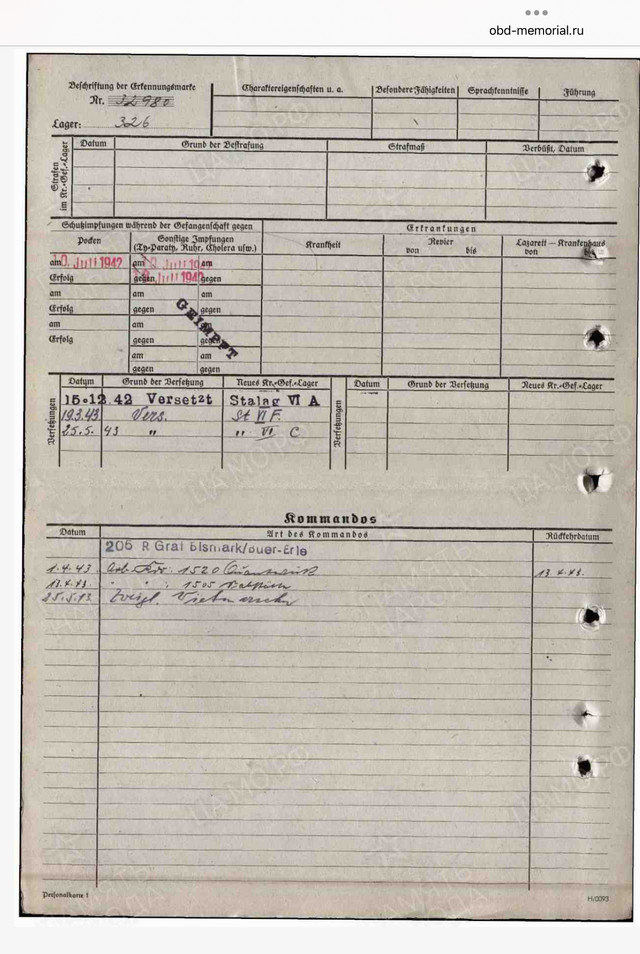 obd-memorial.ru
Beschriftung der Erkennungsmarke
Nr. 32980
Lager: 326
Charaktereigenschaften u. a.
Besondere Fähigkeiten
Sprachkenntnisse
Führung
Strafen im Kr.-Gef.-Lager
Datum
Grund der Bestrafung
Strafmaß
Verbüßt, Datum
Schutzimpfungen während der Gefangenschaft gegen
Erkrankungen
Pocken
Sonstige Impfungen
(Ty-Paraty, Ruhr, Cholera usw.)
Krankheit
Revier
von bis
Lazarett — Krankenhaus
von
am Juli 1942 am am
Erfolg gegen Juli 1942 gegen
am am am
Erfolg gegen gegen
GEIMPFT
am am am
Erfolg gegen gegen
am am
gegen gegen
Versetzungen
Datum Grund der Versetzung Neues Kr.-Gef.-Lager
15.12.42 Versetzt Stalag VI A
19.3.43 Vers. St VI F.
25.5.43 " " VI C
Versetzungen
Datum Grund der Versetzung Neues Kr.-Gef.-Lager
Kommandos
Datum Art des Kommandos Rückkehrdatum
205 R Graf Bismark/Buer-Erle
1.4.43 Arb. Kdo: 1520 13.4.43.
13.4.43. " " 1505
25.5.43
Personalkarte I